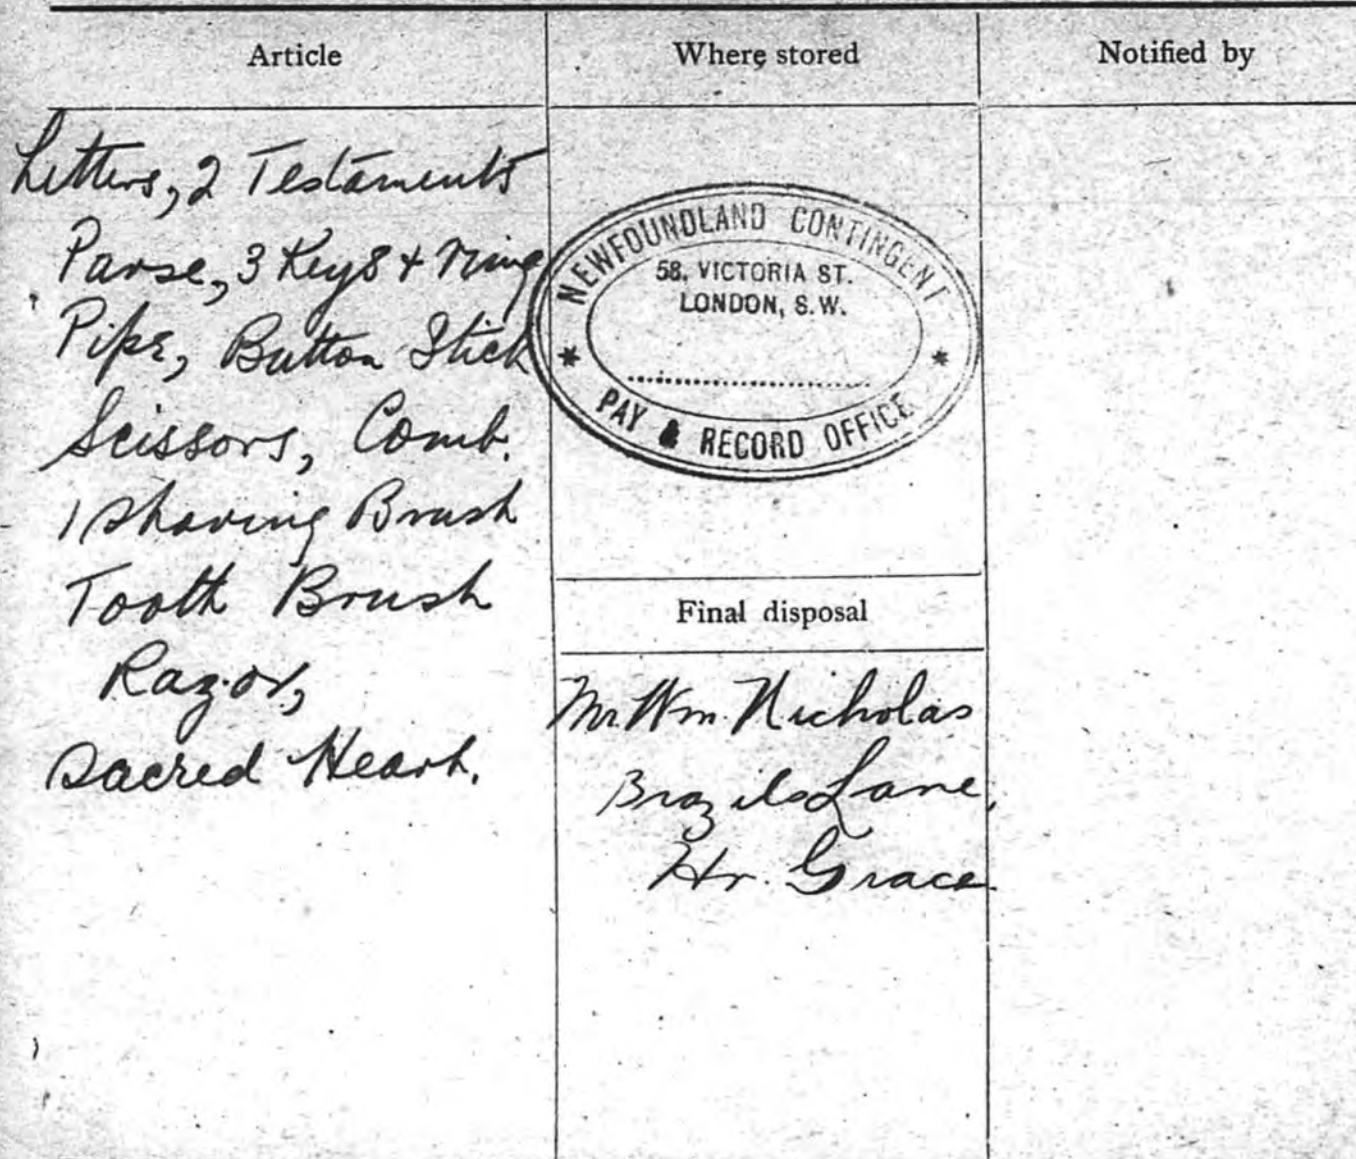 Article
Where stored
Notified by
Letters, 2 Testaments
Parse, 3 Keys + ring
Pipe, Button Stick
Scissors, Comb.
1 Shaving Brush
Tooth Brush
Razor,
Sacred Heart.
NEWFOUNDLAND CONTINGENT
58, VICTORIA ST.
LONDON, S.W.
PAY & RECORD OFFICE
Final disposal
Mr. Wm. Nicholas
Brazils Lane,
Hr. Grace